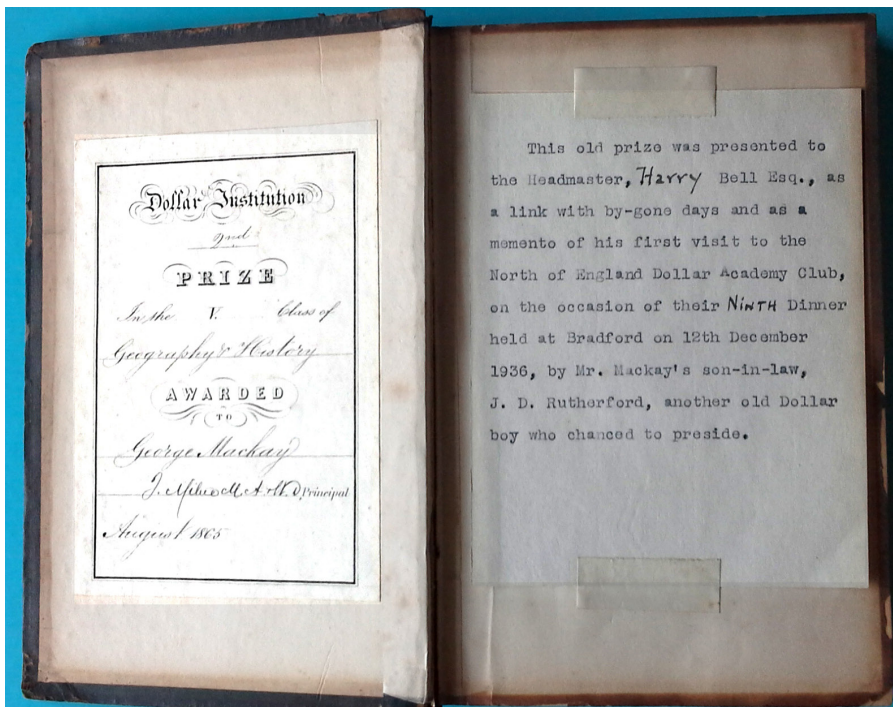 Dollar Institution
2nd
PRIZE
In the V. Class of
Geography & History
AWARDED
TO
George Mackay
J. Milne M.A. LL.D. Principal
August 1865
This old prize was presented to
the Headmaster, Harry Bell Esq., as
a link with by-gone days and as a
memento of his first visit to the
North of England Dollar Academy Club,
on the occasion of their NINTH Dinner
held at Bradford on 12th December
1936, by Mr. Mackay's son-in-law,
J. D. Rutherford, another old Dollar
boy who chanced to preside.